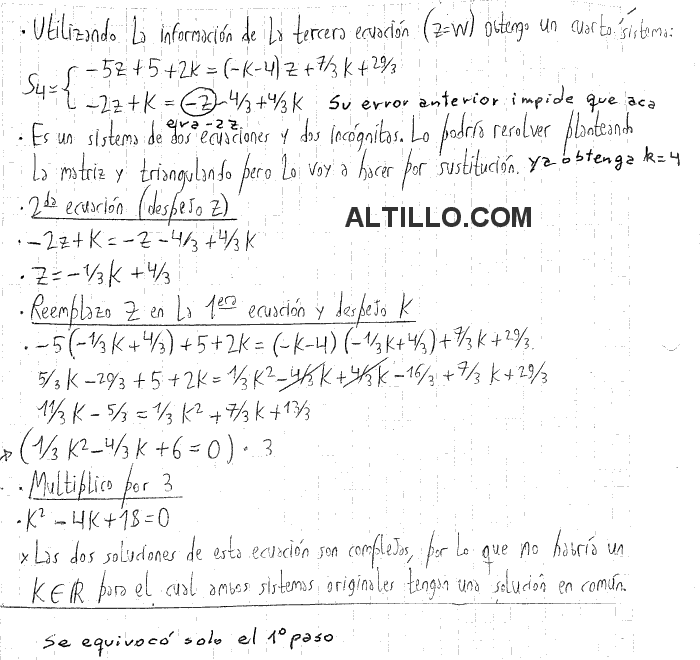 · Utilizando la información de la tercera ecuación (z=w) obtengo un cuarto sistema:
S4= { -5z+5+2k=(-k-4)z+7/3k+29/3
-2z+k=-z-4/3+4/3k Su error anterior impide que aca
era -2z
· Es un sistema de dos ecuaciones y dos incógnitas. Lo podría resolver planteando
la matriz y triangulando pero lo voy a hacer por sustitución. ya obtenga k=4
· 2da ecuación (despejo z)
ALTILLO.COM
· -2z+k=-z-4/3+4/3k
· z=-1/3k+4/3
· Reemplazo z en la 1era ecuación y despejo k
· -5(-1/3k+4/3)+5+2k=(-k-4)(-1/3k+4/3)+7/3k+29/3.
5/3k-20/3+5+2k=1/3k²-4/3k+4/3k-16/3+7/3k+29/3
11/3k-5/3=1/3k²+7/3k+13/3
(1/3k²-4/3k+6=0)·3
· Multiplico por 3
· k²-4k+18=0
x Las dos soluciones de esta ecuación son complejas, por lo que no habría un
K∈R para el cual ambos sistemas originales tengan una solución en común.
Se equivocó solo el 1º paso